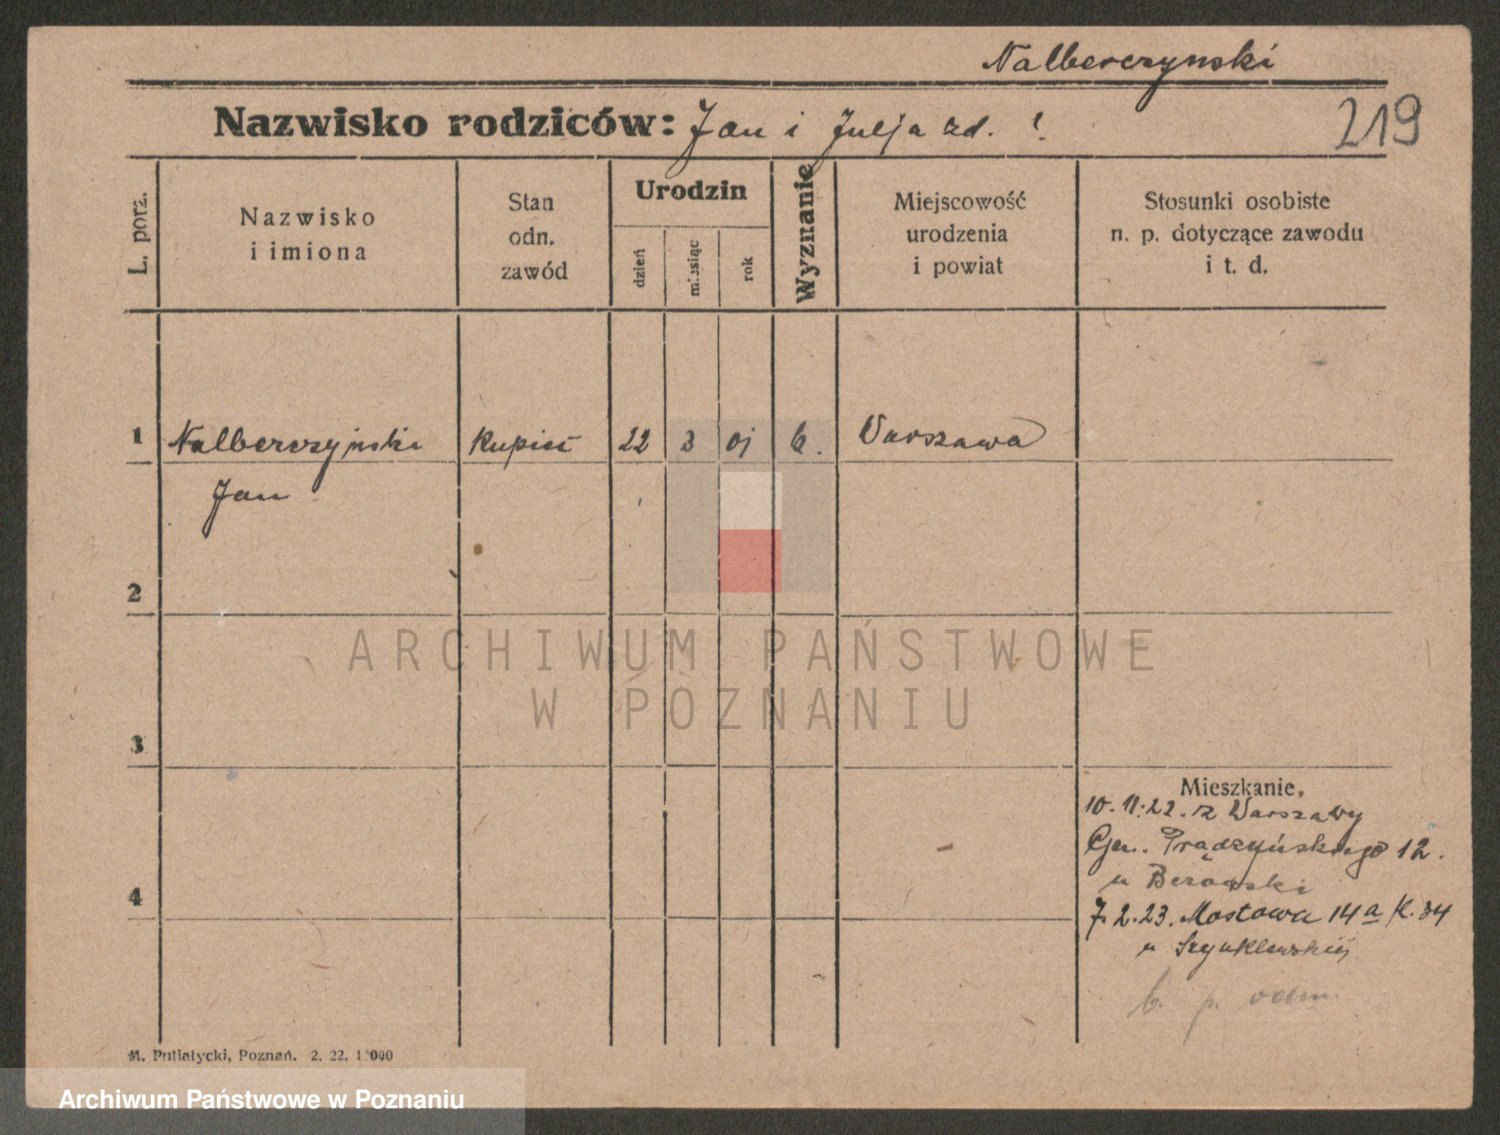 Nalberczynski
Nazwisko rodziców: Jan i Julja zd. ?
219
L. porz.
Nazwisko
i imiona
Stan
odn.
zawód
Urodzin
dzień
miesiąc
rok
Wyznanie
Miejscowość
urodzenia
i powiat
Stosunki osobiste
n. p. dotyczące zawodu
i t. d.
1 Nalberczyński Kupiec 22 3 01 k. Warszawa
Jan
2
3
4
Mieszkanie.
10.11.22. z Warszawy
Gen. Prądzyńskiego 12.
u
7.2.23. Mostowa 14a K. 34
u
b. p. odm.
M. Putiatycki, Poznań. 2. 22.
ARCHIWUM PAŃSTWOWE
W POZNANIU
Archiwum Państwowe w Poznaniu